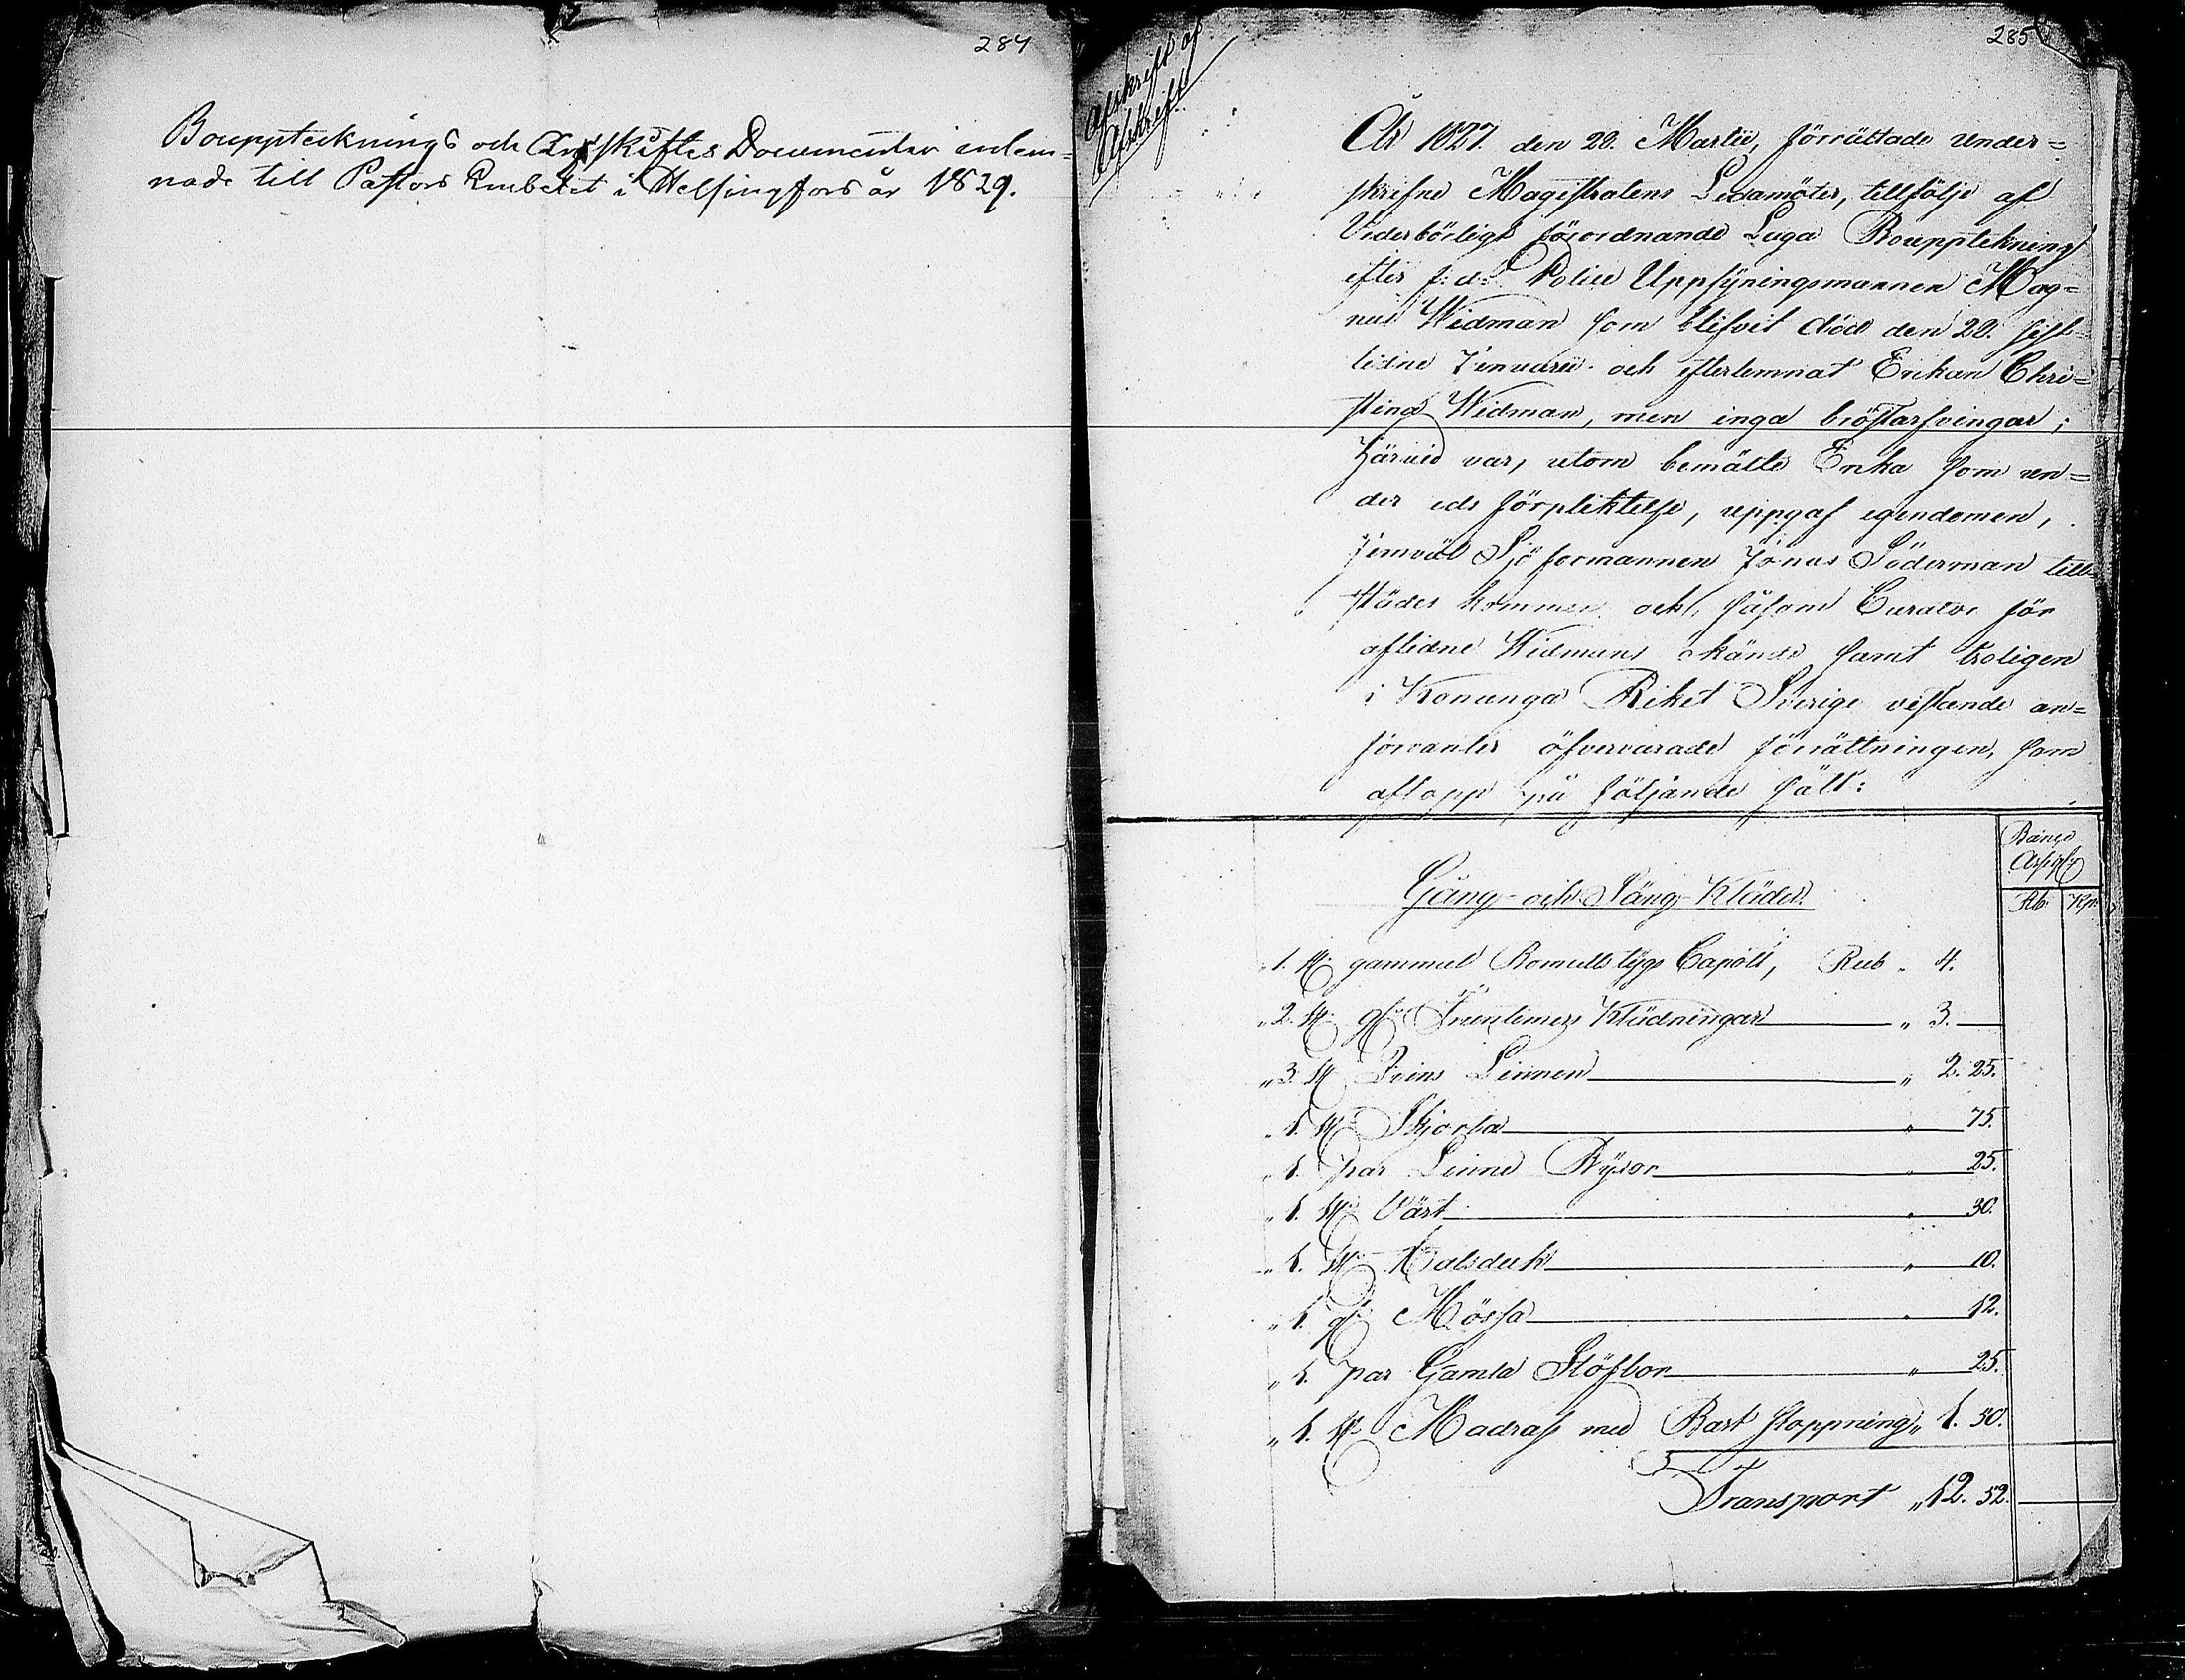 284
Bouppteknings och Arfskiftes Documenter inlem=
nade till Pastors Embetet i Helsingfors år 1829.
285
Afskrift af
Afskrift.
År 1827. den 20. Martii, förrättade under=
skrifne Magistratens Ledamöter, tillfölje af
Vederbörligt förordnande Laga Bouppteknings
efter f: d: Police Uppsyningsmannen Mag=
nus Widman som blifvit död den 20. sist=
lidne Januarii och efterlemnat Enkan Chri=
stina Widman, men inga bröstarfvingar;
Härvid var, utom bemälte Enka som un=
der eds förpliktelse, uppgaf egendomen,
jemväl Sjöformannen Jonas Söderman till=
städes kommen och, såsom Curator för
aflidne Widmans okände samt troligen
i Konunga Riket Sverige vistande an=
förvanter öfvervarade förrättningen, som
aflopp på följande sätt:
Banco
Assign:
Rb. Kp.
Gång- och Säng-Kläder.
1. st. gammal Bomullstygs Capott, Rub. " 4.
" 2. st. gl. Klädningar " 3.
" 3. st. Linnen " 2. 25.
" 1. st. Skjorta " 75.
" 1. par Linne Byxor " 25.
" 1. st. Väst " 30.
" 1. st. Halsduk " 10.
" 1. gl. Mössa " 12.
" 1. par Gamla Stöflor " 25.
" 1. st. Madrass med Bast stoppning " 1. 50.
Transport " 12. 52.